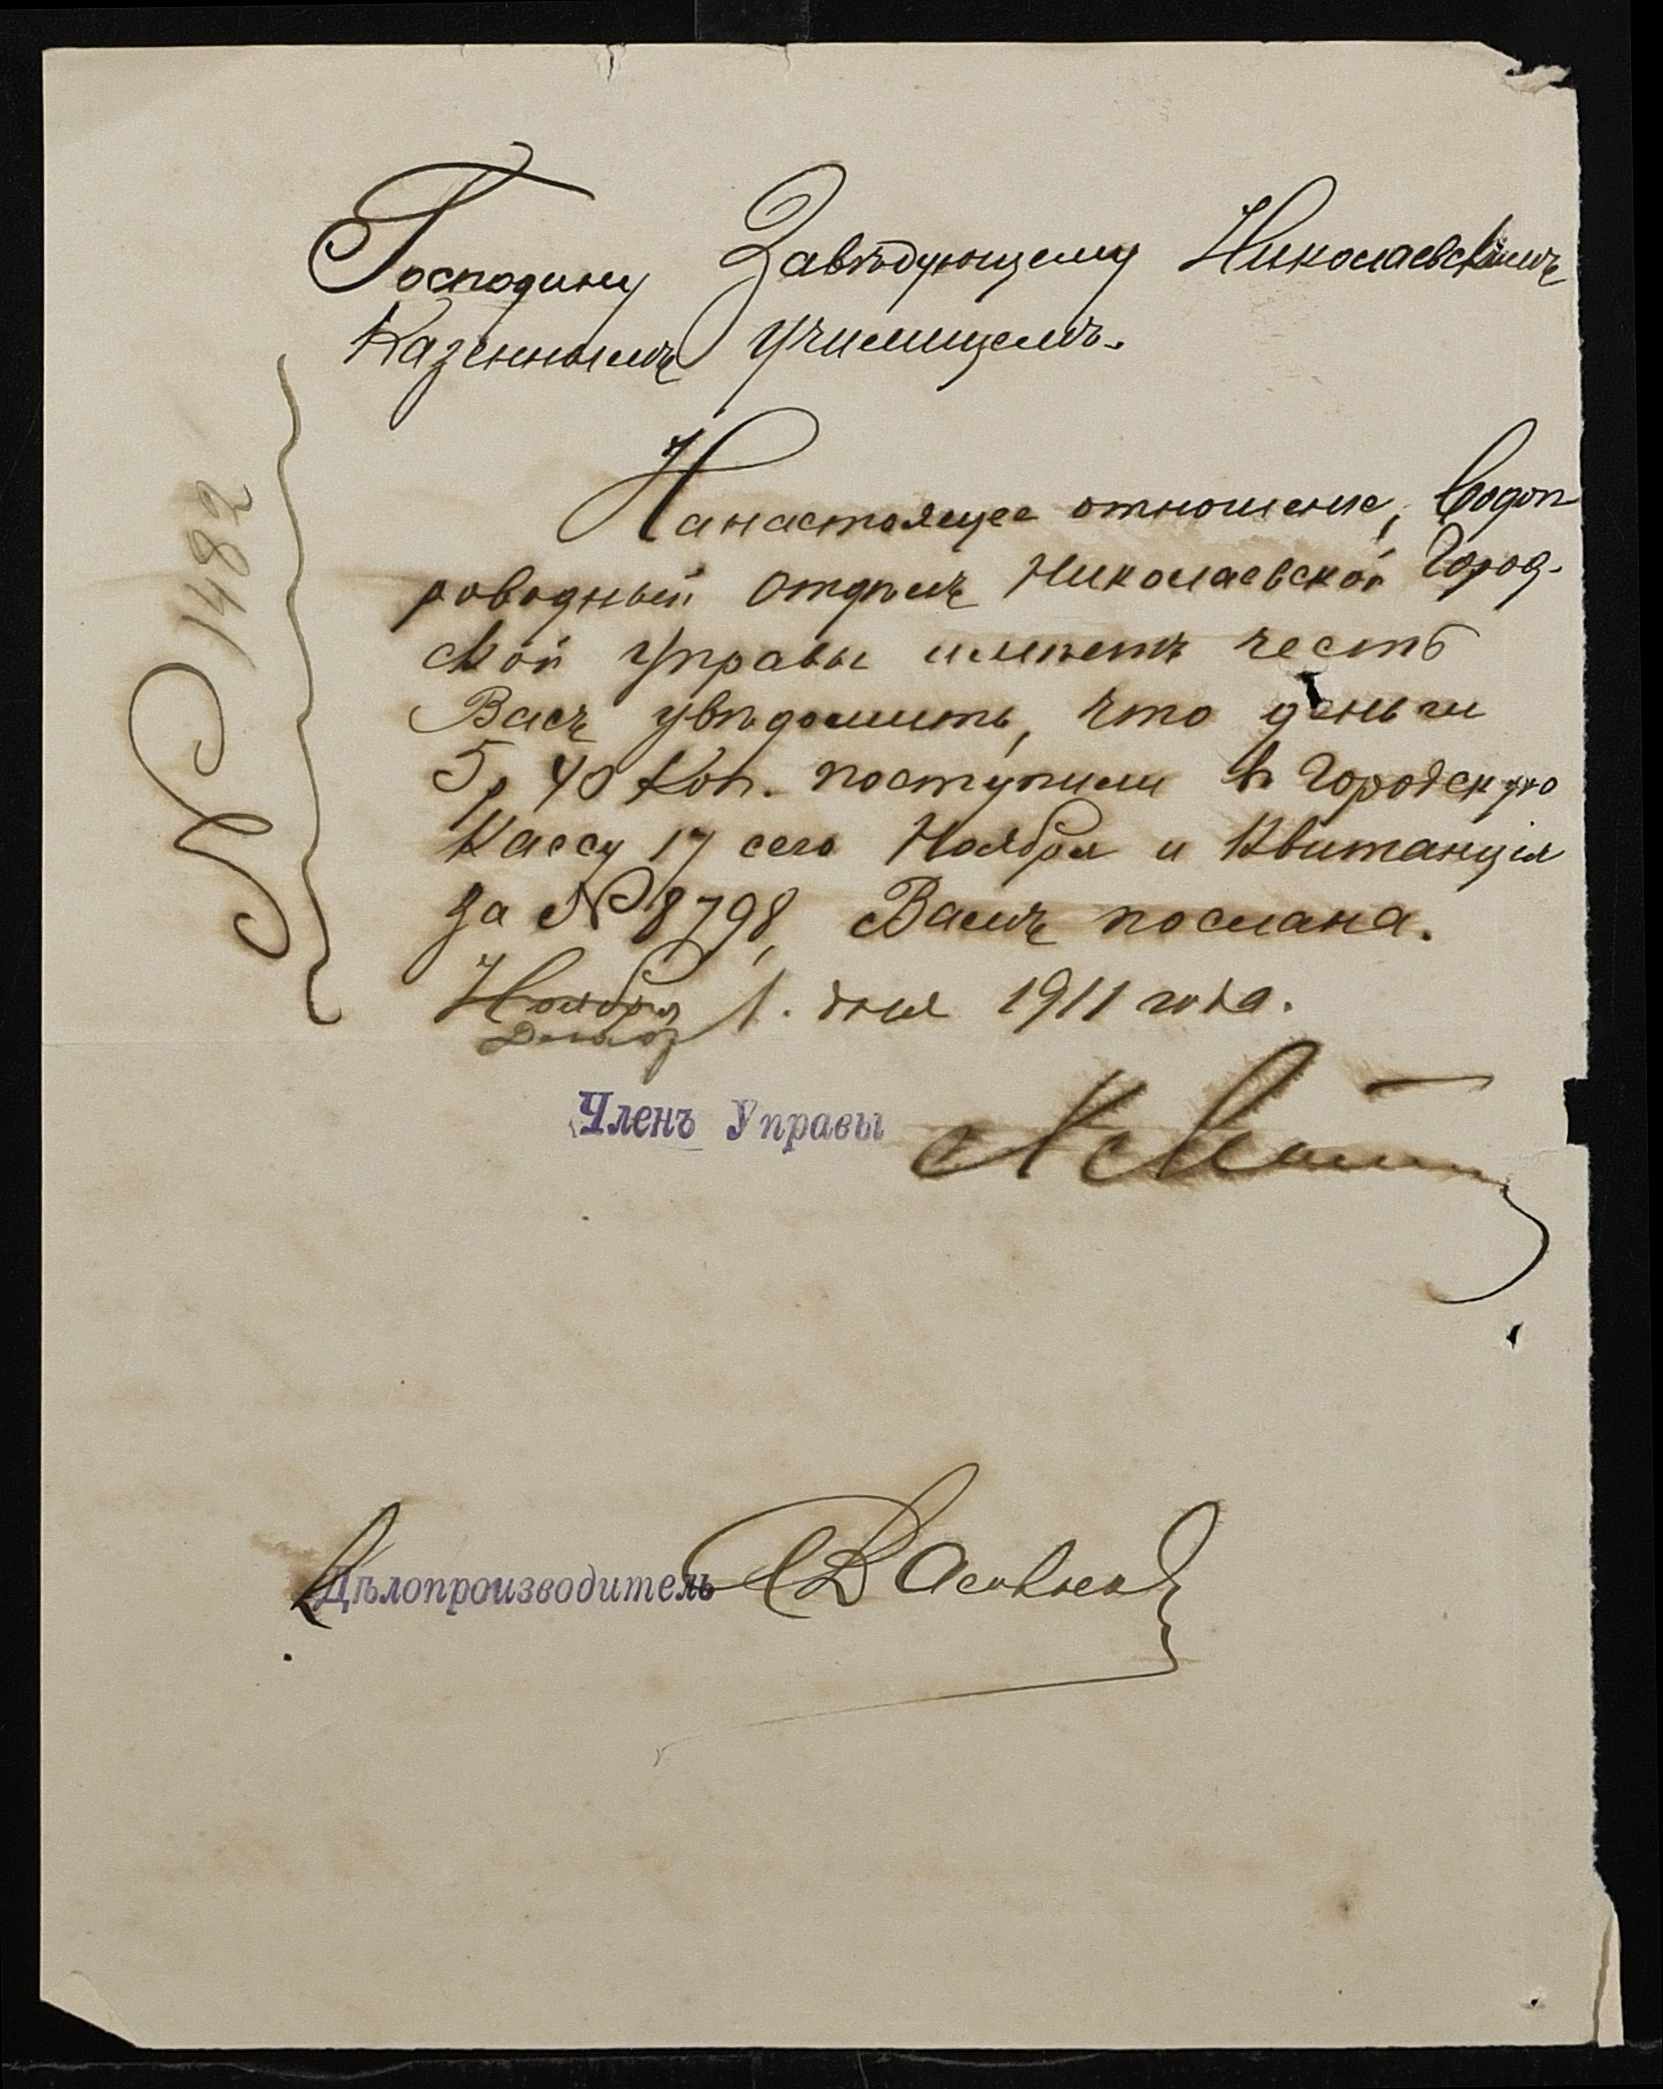 Господину Завѣдующему Николаевскимъ
Казеннымъ Училищемъ.
№ 1482
На настоящее отношеніе, Водоп-
роводный Отдѣлъ Николаевской Город-
ской Управы имѣетъ честь
Васъ увѣдомить, что деньги
5 р 40 Коп. поступили въ Городскую
Кассу 17 сего Ноября и Квитанція
за № 8798, Вамъ послана.
Ноября 1. дня 1911 года.
Декабр
Членъ Управы
Дѣлопроизводитель